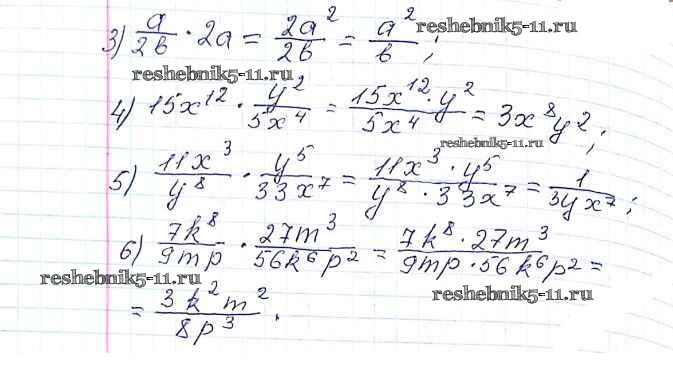 3) a/2b · 2a = 2a²/2b = a²/b ;
reshebnik5-11.ru
reshebnik5-11.ru
4) 15x¹² · y²/5x⁴ = 15x¹² · y²/5x⁴ = 3x⁸y² ;
reshebnik5-11.ru
5) 11x³/y⁸ · y⁵/33x⁷ = 11x³ · y⁵/y⁸ · 33x⁷ = 1/3yx⁷ ;
6) 7k⁸/9mp · 27m³/56k⁶p² = 7k⁸ · 27m³/9mp · 56k⁶p² =
reshebnik5-11.ru
reshebnik5-11.ru
= 3k²m²/8p³ .